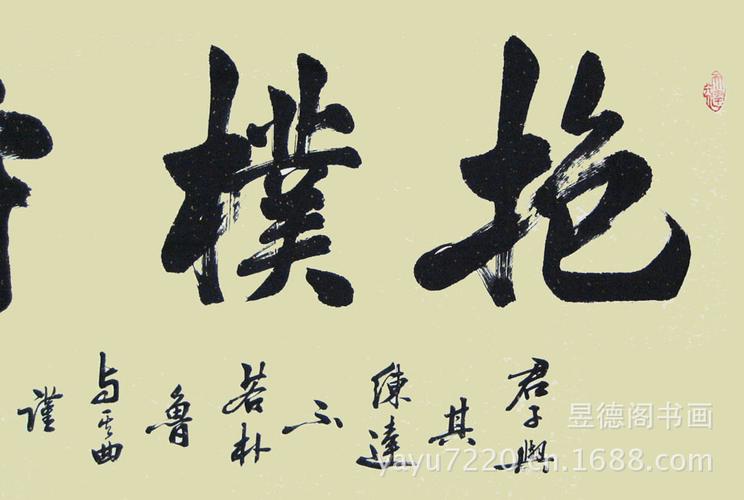 抱樸
君子與
其
練達
不
若朴
魯
与其曲
謹
昱德阁书画
yayu7220.cn.1688.com